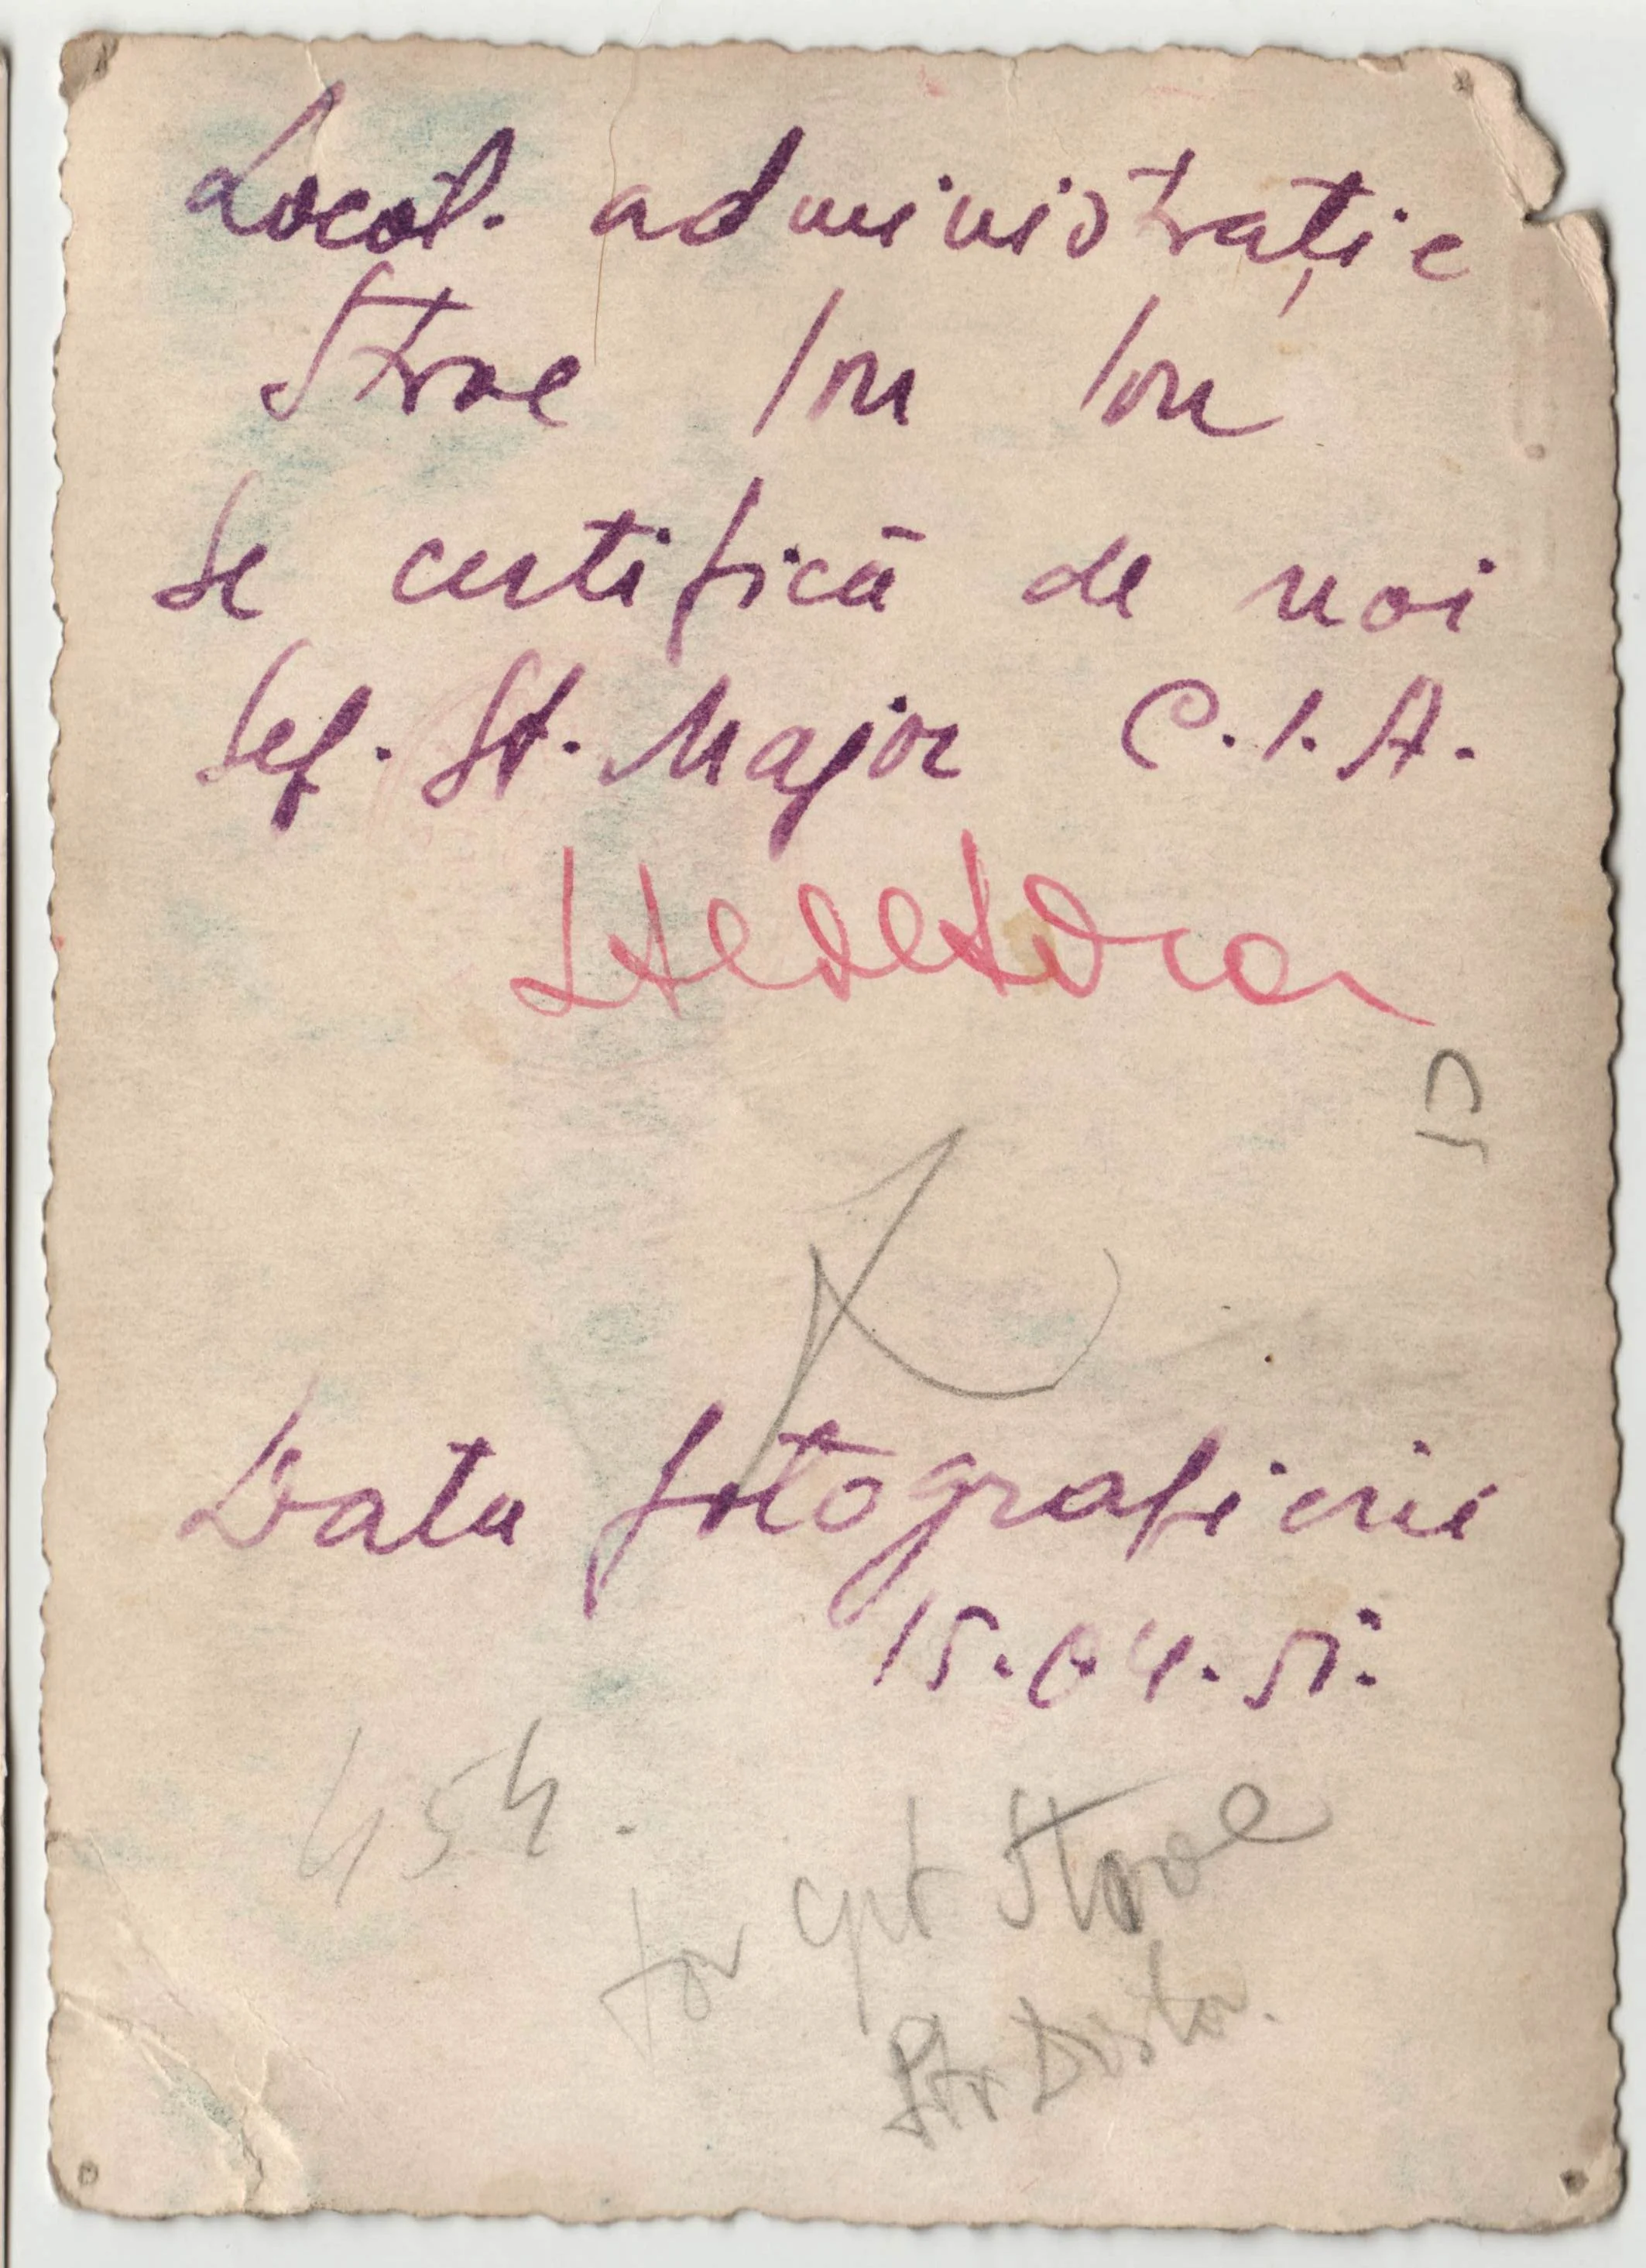 Locot. administrație
Stroe Ion Ion
Se certifică de noi
Șef. St. Major C.I.A.
Data fotografierii
15.04.51.
454.
cpt Stroe
Str